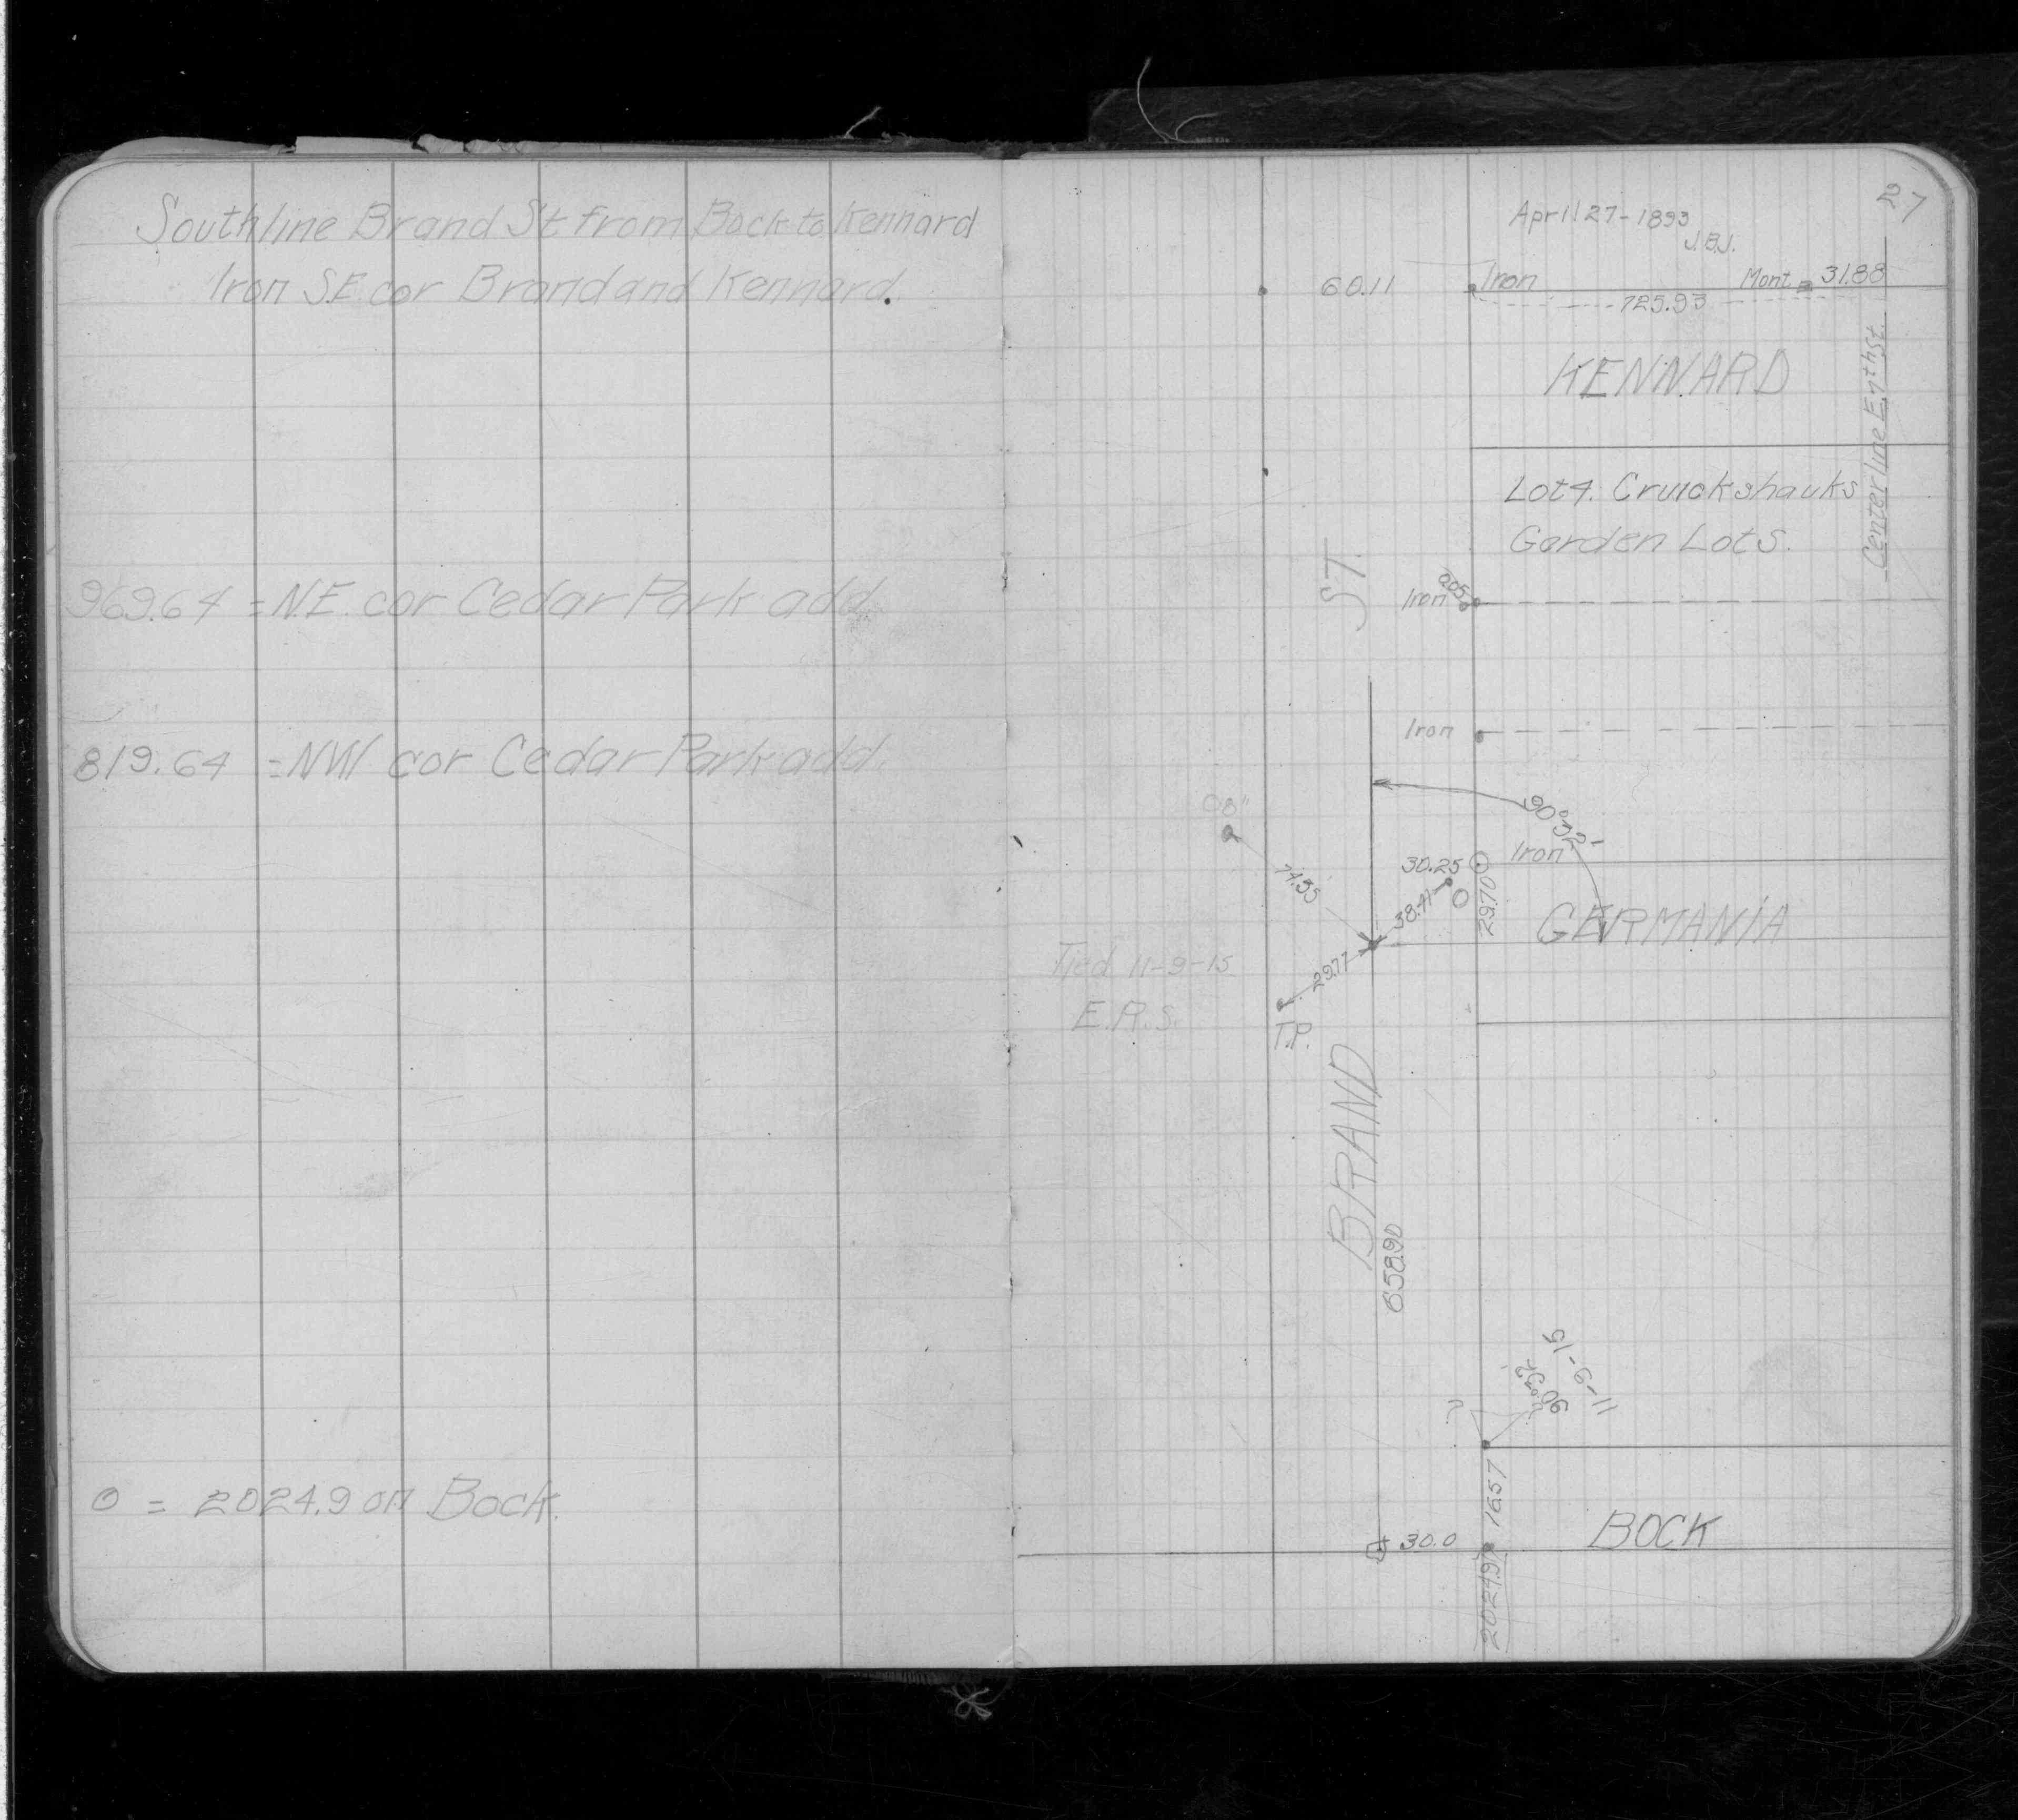 Southline Brand St from Bock to Kennard
Iron S.E. cor Brand and Kennard.
969.64 = N.E. cor Cedar Park add.
819.64 = NW cor Cedar Park add.
0 = 2024.9 on Bock.
27
April 27-1893
J.B.J.
60.11 Iron Mont. 31.88
725.93
KENNARD
Centerline E. 7th St.
Lot 4. Cruickshauks
Garden Lots.
ST.
Iron 0.05
Iron
90°32'
Iron
30.25
74.35
38.41
29.70
GERMANIA
Tied 11-9-15
E.R.S.
29.77
T.P.
BRAND
658.90
11-9-15
?
16.57
BOCK
30.0
2024.97